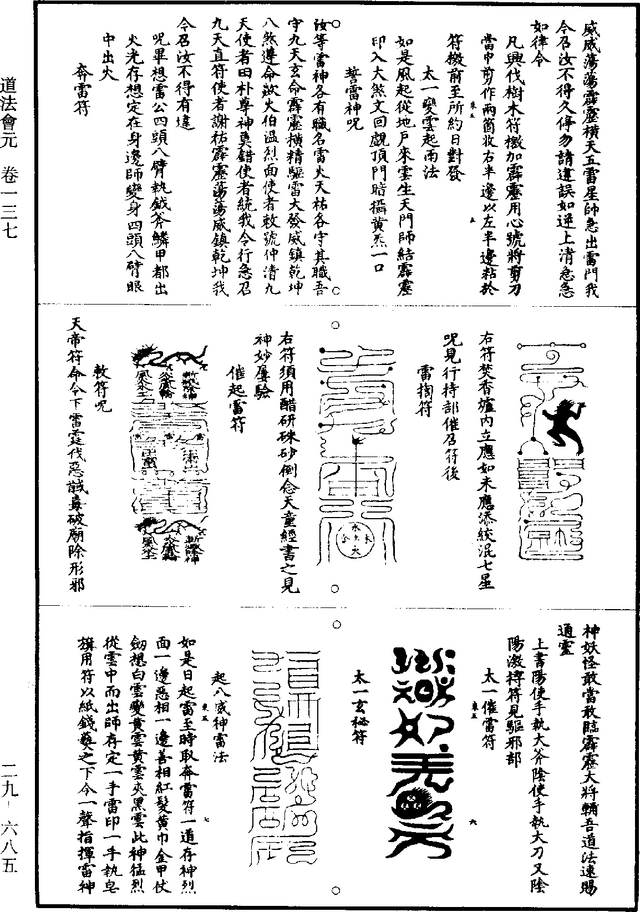 威威蕩蕩霹靂橫天五雷星帥急出雷門我
今召汝不得久停勿請違誤如逆上清急急
如律令
凡興伐樹木符檄加霹靂用心號將剪刀
當中剪作兩箇收右半邊以左半邊粘於
符檄前至所約日對發
太一變雲起雨法
如是風起從地戶來雲生天門師結霹靂
印入大煞文回覷頂門暗攝黃炁一口
誓雷神呪
汝等雷神各有職名雷火天祐各守其職吾
守九天玄命霹靂橫精驅雷大發威鎮乾坤
八煞遵命歘火伯溫烈面使者敕號仲清九
天使者田朴尊神莫錯使者統我令行急召
九天直符使者謝祐霹靂蕩蕩威鎮乾坤我
今召汝不得有違
呪畢想雷公四頭八臂執鉞斧鱗甲都出
火光存想定在身邊師變身四頭八臂眼
中出火
奔雷符
右符焚香爐內立應如未應添絞混七星
呪見行持部催召符後
雷擣符
右符須用醋研硃砂倒念天童經書之見
神妙屢驗
催起雷符
敕符呪
天帝符命令下雷霆伐惡誠毒破廟除形邪
神妖怪敢當敢臨霹靂大將輔吾道法速賜
通靈
上書陽使手執大斧陰使手執大刀又陰
陽激搏符見驅邪部
太一催雷符
太一玄秘符
起八威神雷法
如是日起雷至時取奔雷符一道存神烈
面一邊惡相一邊善相紅髮黃巾金甲仗
劒想白雲變黃雲黃雲夾黑雲此神猛烈
從雲中而出師存定一手雷印一手執皂
旗用符以紙錢爇之下令一聲指揮雷神
道法會元 卷一三七
二九-六八五